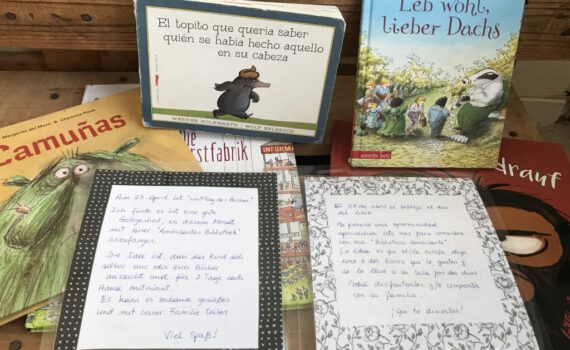 El topito que quería saber
quién se había hecho aquello
en su cabeza
WERNER HOLZWARTH / WOLF ERLBRUCH
Leb wohl,
lieber Dachs
annette betz
Margarita del Mazo
Camuñas
stfabrik
INFORM
drauf
Am 23. April ist "Welttag des Buches"
Ich finde es ist eine gute
Gelegenheit, in diesem Monat
mit einer "Ambulanten Bibliothek"
anzufangen.
Die Idee ist, dass das Kind sich
selber eins oder zwei Bücher
aussucht und für 2 Tage nach
Hause mitnimmt.
Es kann es zuhause genießen
und mit seiner Familie teilen.
Viel Spaß!
El 23 de abril se festeja el día
del libro
Me pareció una oportunidad
aprovechar este mes para comenzar
con una "Biblioteca Ambulante".
La idea es que el/la niño/a elija
uno o dos libros que le gusten y
se lo lleve a su casa por dos días.
Podrá disfrutarlos y/o compartir
con su familia.
¡Que te diviertas!